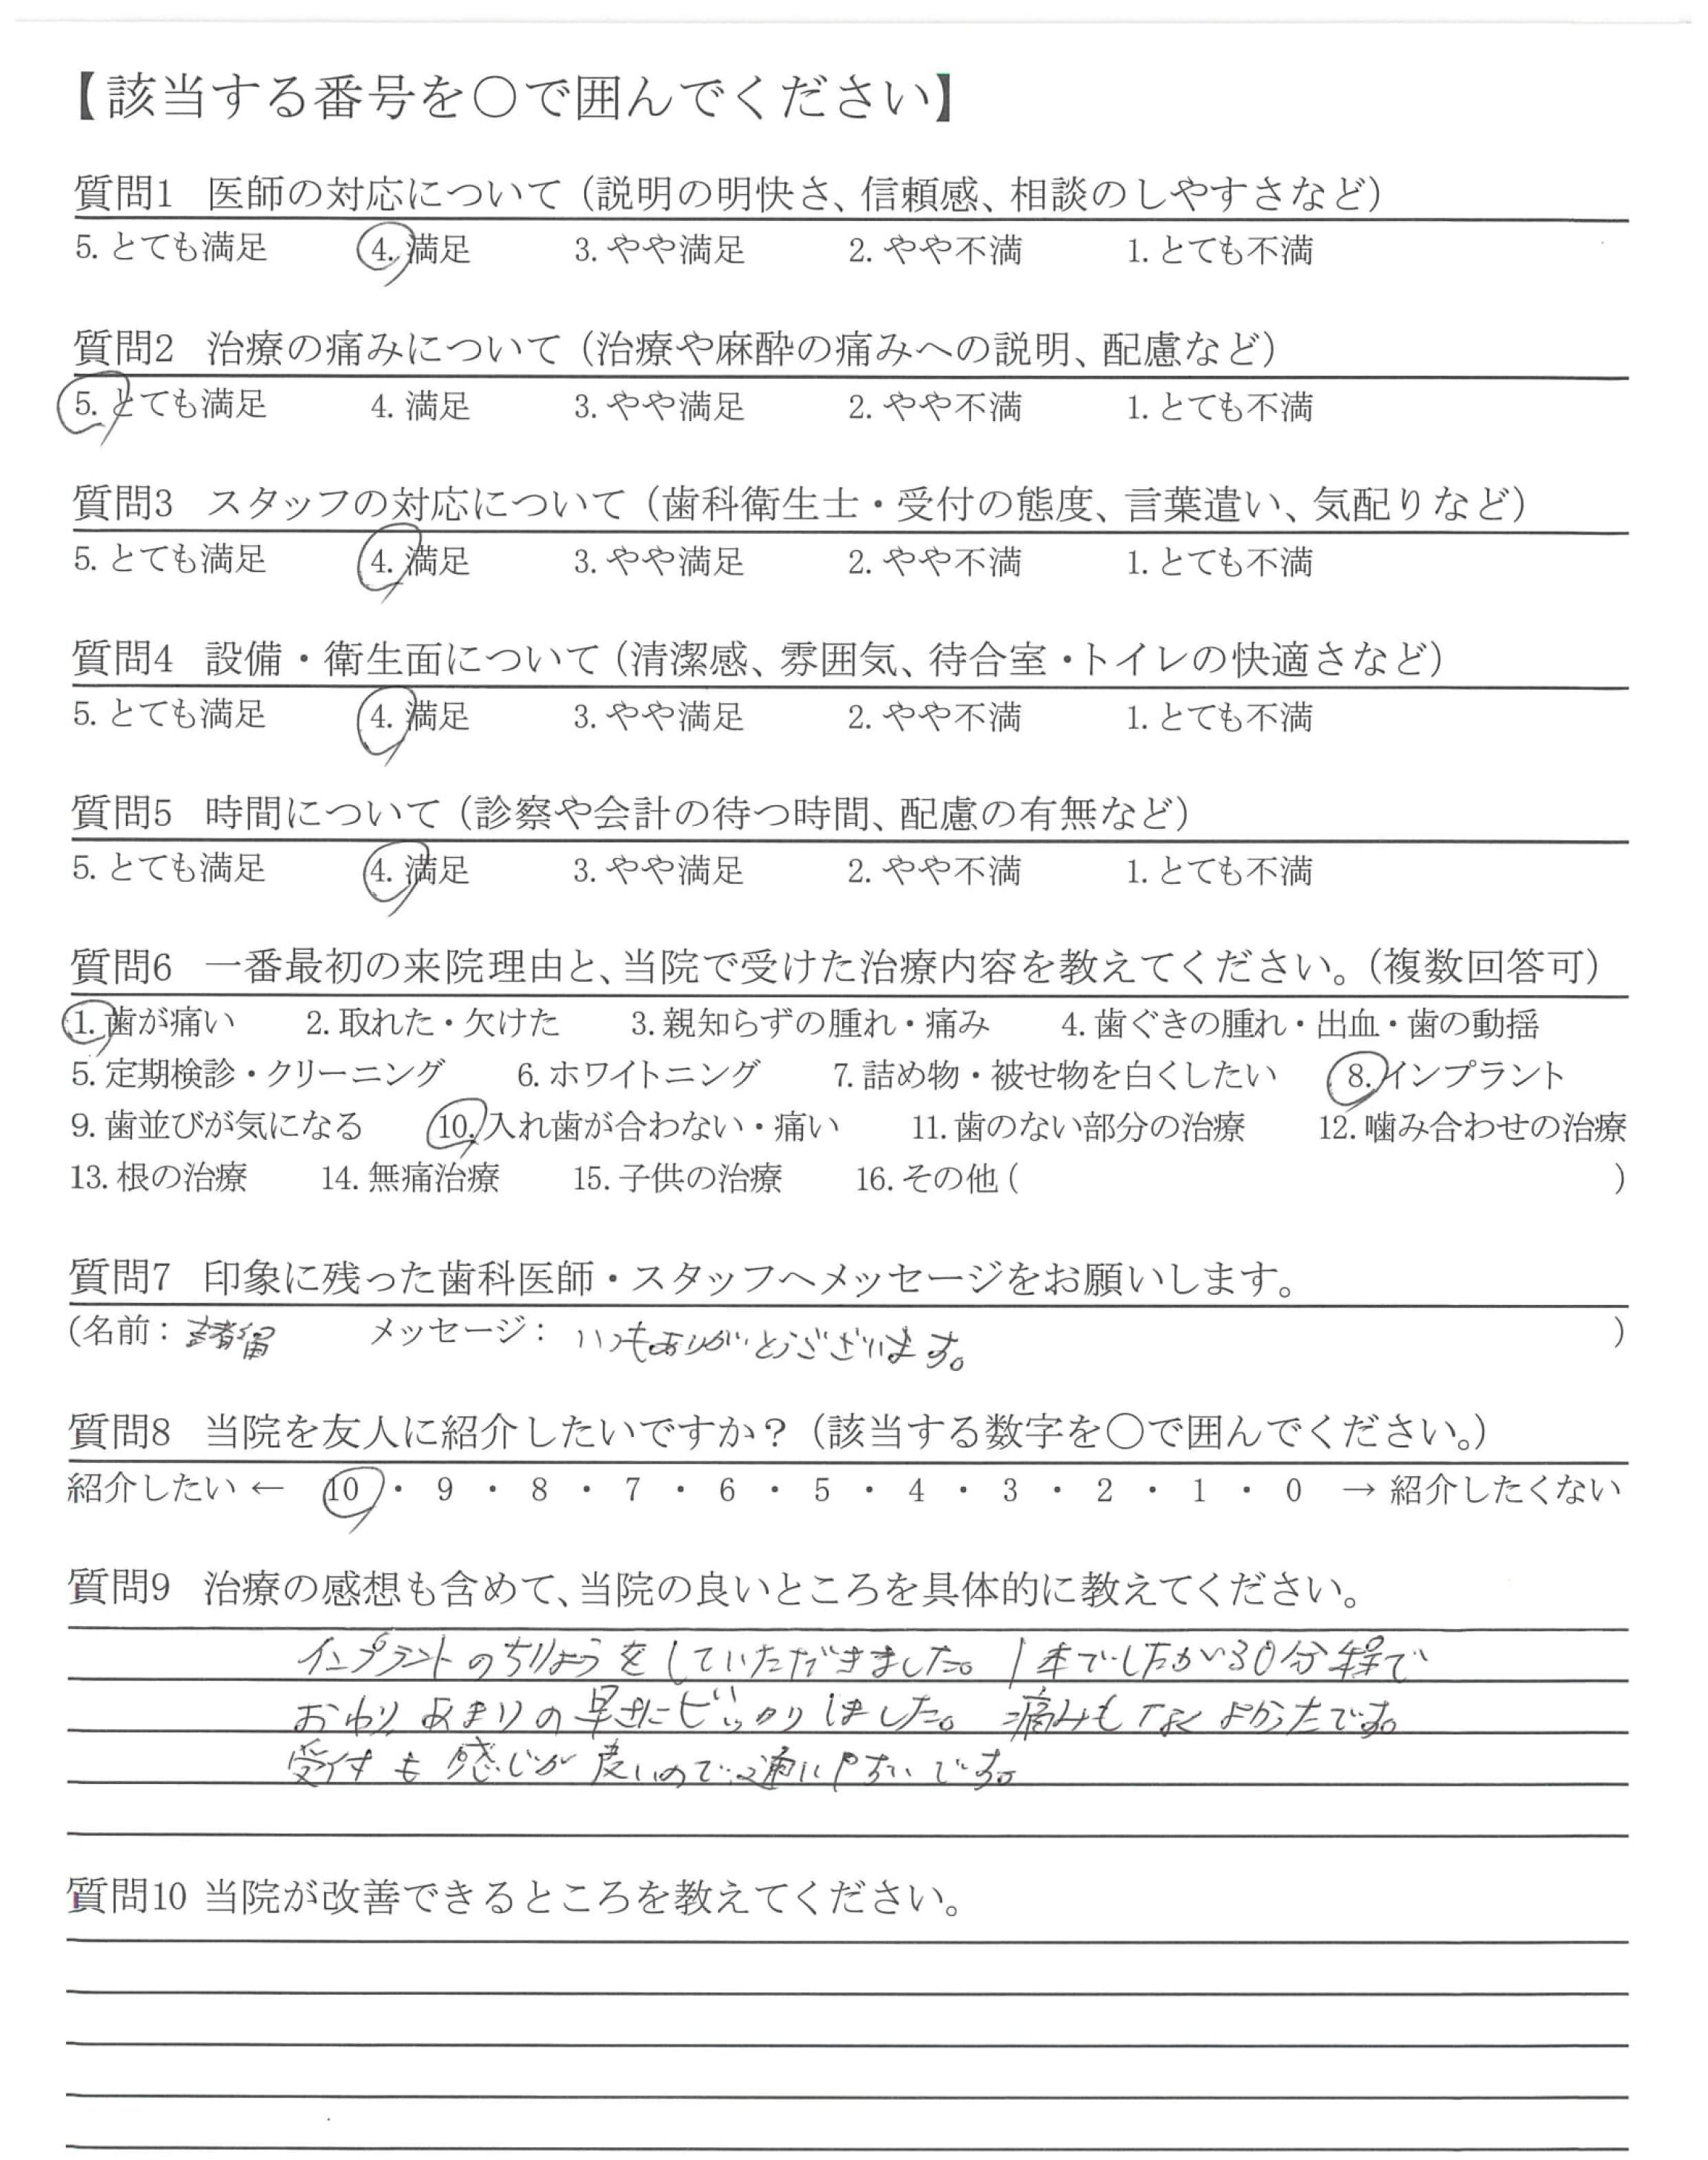 【該当する番号を○で囲んでください】
質問1 医師の対応について（説明の明快さ、信頼感、相談のしやすさなど）
5. とても満足 4. 満足 3. やや満足 2. やや不満 1. とても不満
質問2 治療の痛みについて（治療や麻酔の痛みへの説明、配慮など）
5. とても満足 4. 満足 3. やや満足 2. やや不満 1. とても不満
質問3 スタッフの対応について（歯科衛生士・受付の態度、言葉遣い、気配りなど）
5. とても満足 4. 満足 3. やや満足 2. やや不満 1. とても不満
質問4 設備・衛生面について（清潔感、雰囲気、待合室・トイレの快適さなど）
5. とても満足 4. 満足 3. やや満足 2. やや不満 1. とても不満
質問5 時間について（診察や会計の待つ時間、配慮の有無など）
5. とても満足 4. 満足 3. やや満足 2. やや不満 1. とても不満
質問6 一番最初の来院理由と、当院で受けた治療内容を教えてください。（複数回答可）
1. 歯が痛い 2. 取れた・欠けた 3. 親知らずの腫れ・痛み 4. 歯ぐきの腫れ・出血・歯の動揺
5. 定期検診・クリーニング 6. ホワイトニング 7. 詰め物・被せ物を白くしたい 8. インプラント
9. 歯並びが気になる 10. 入れ歯が合わない・痛い 11. 歯のない部分の治療 12. 噛み合わせの治療
13. 根の治療 14. 無痛治療 15. 子供の治療 16. その他 ( )
質問7 印象に残った歯科医師・スタッフへメッセージをお願いします。
(名前： 諸留 メッセージ： いつもありがとうございます。 )
質問8 当院を友人に紹介したいですか？（該当する数字を○で囲んでください。）
紹介したい ← 10 ・ 9 ・ 8 ・ 7 ・ 6 ・ 5 ・ 4 ・ 3 ・ 2 ・ 1 ・ 0 → 紹介したくない
質問9 治療の感想も含めて、当院の良いところを具体的に教えてください。
インプラントのちりょうをしていただきました。1本でしたが30分程で
おわり あまりの早さにビックリしました。痛みもなくよかったです。
受付も感じが良いので通いやすいです。
質問10 当院が改善できるところを教えてください。